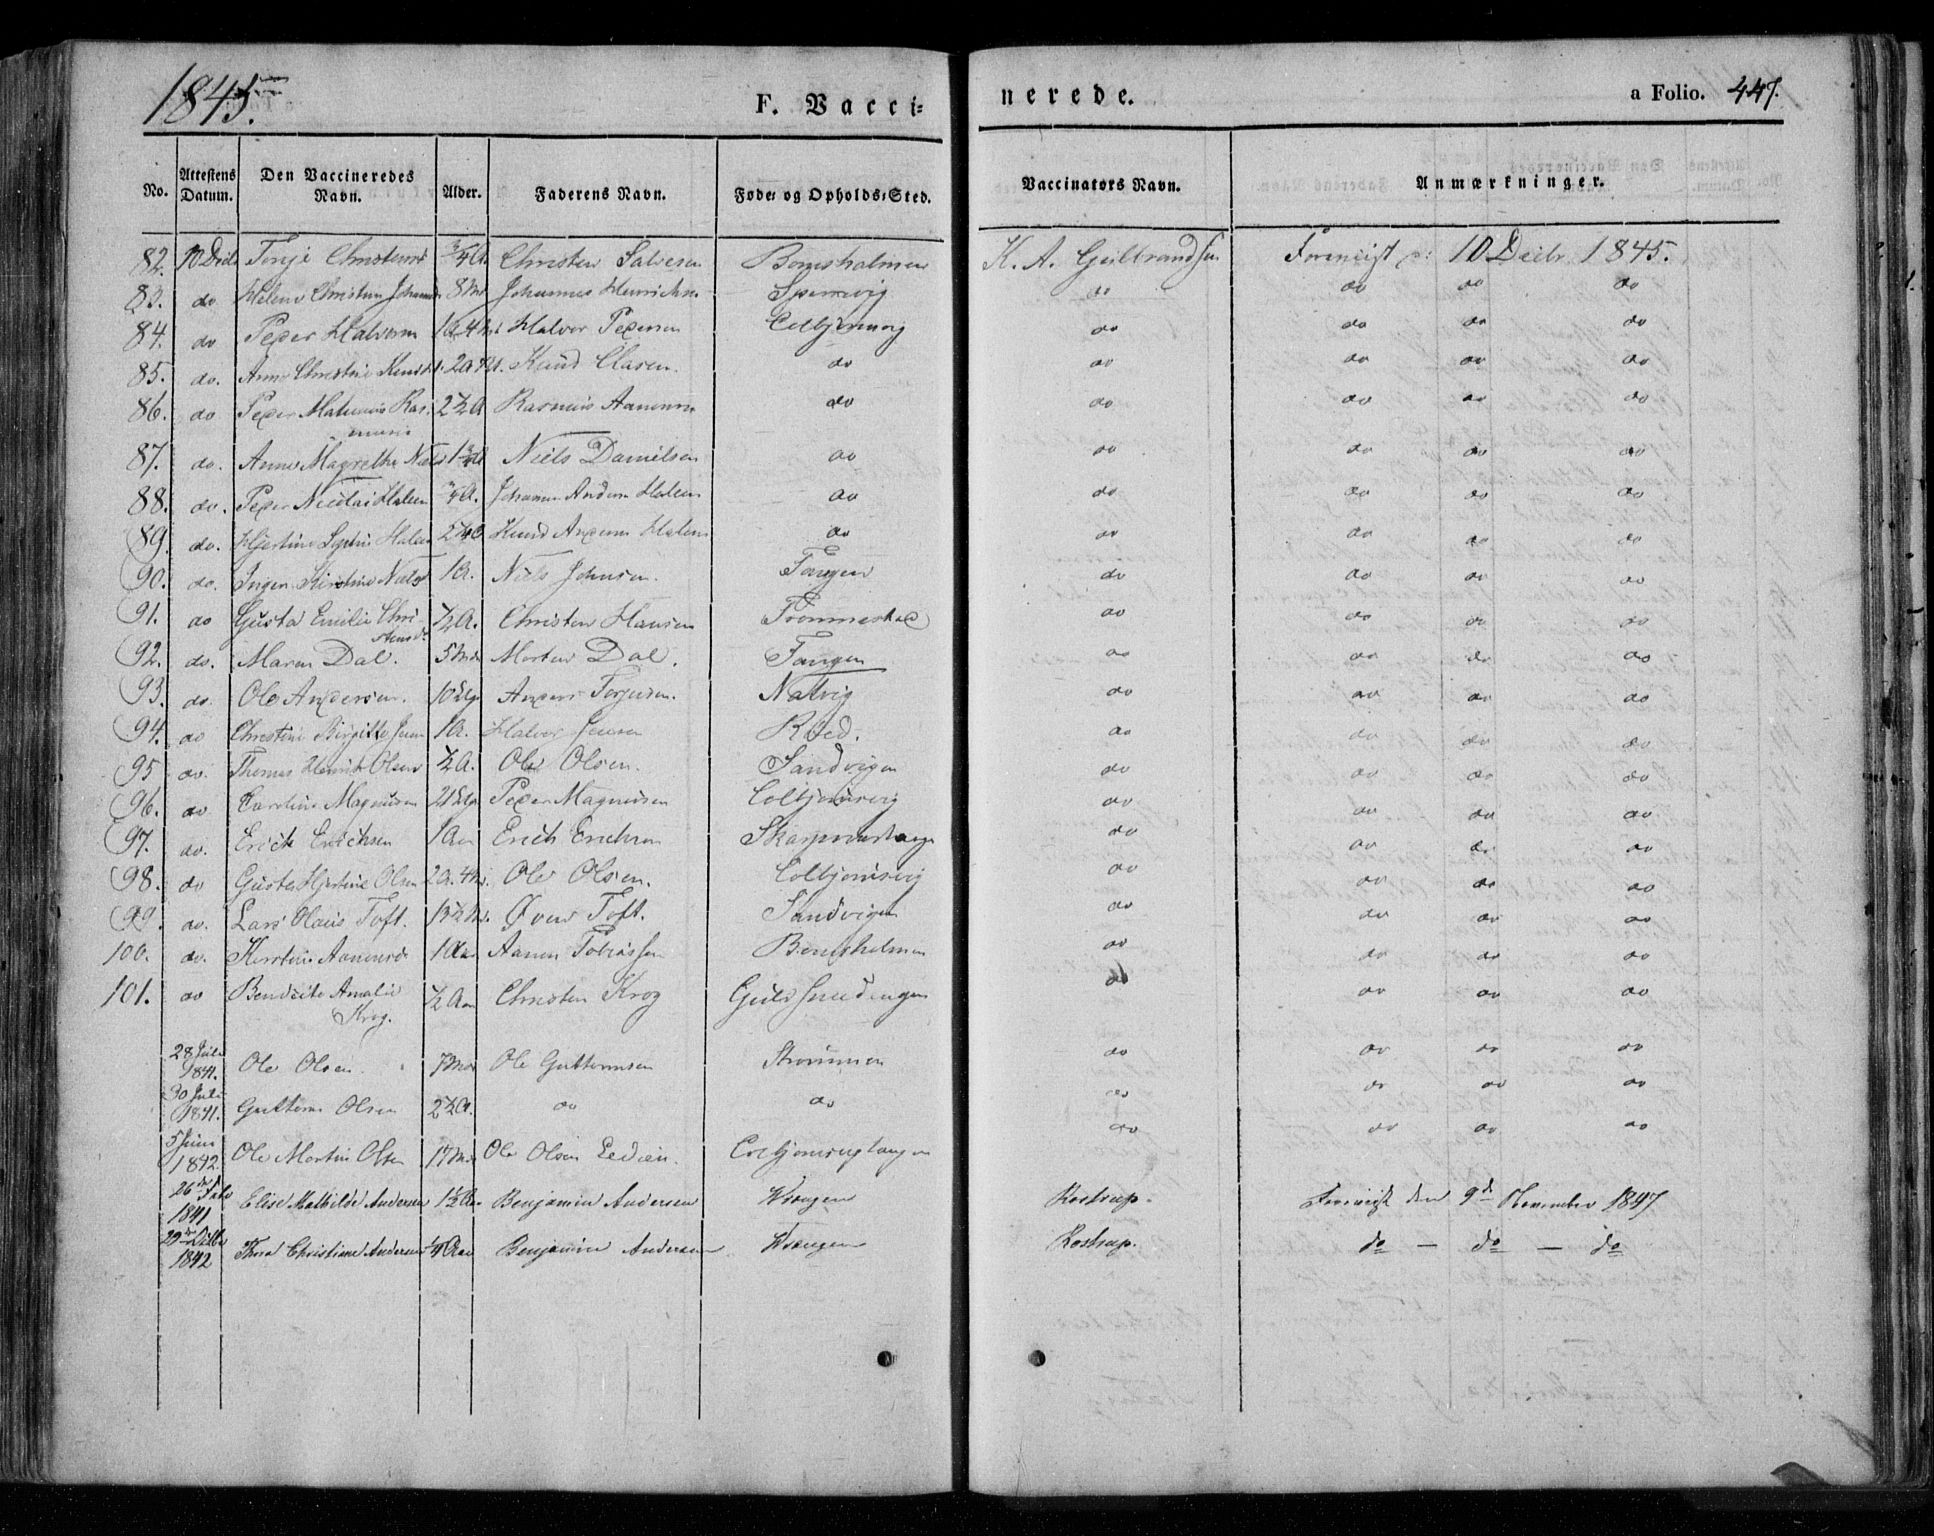 1845.
F. Vacci-
nerede.
a Folio. 447.
No.
Attestens Datum.
Den Vaccineredes Navn.
Alder.
Faderens Navn.
Føde- og Opholds-Sted.
Vaccinators Navn.
Anmærkninger.
82. 10 Decbr Christen Salvesen K. A. Gulbrandsen 10 Decbr 1845.
83. do Helene Christine 8 Md Johannes Henrichsen Spærrevig do do do do
84. do Peder Halvorsen Halvor Pedersen Colbjørnsvig do do do do
85. do. Anne Christine Knud Clasen. do do do do do
86. do Peder Mathias Ras- 2½ A Rasmus Aanonsen do do do do do
musen
87. do. Anne Magrethe Niels 1¾ A Niels Danielsen do do do do do
88. do. Peder Nicolai Halsen ¾ A. Johannes Andersen Halsen do do do do do
89. do. Sophie Halsen Knud Andersen Halsen do do do do do
90. do. Ingen Kirstine Nielsd 1 A. Niels Johnsen. Tangen do do do do
91. do Gusta Emilie Chri- ½ A. Christen Hansen Tromnestad do do do do
stensd.
92. do. Maren Dal. 5 Md Morten Dal. Tangen do do do do
93. do. Ole Andersen. 10 Anders Torjusen. Natvig do do do do
94. do Christine Birgitte 1 A. Halvor Jensen Roed. do do do do
95 do. Thomas Henrik Olsen ½ A. Ole Olsen. Sandvigen do do do do
96. do Caroline Magnusen 21 Peder Magnusen Colbjørnsvig do do do do
97. do. Erich Erichsen 1 Aar Erich Erichsen do do do do
98. do Gusta Hjertine Olsen 2 A. 4 M. Ole Olsen. Colbjørnsvig do do do do
99. do. Lars Olaus Toft. Øven Toft. Sandvigen do do do do
100. do. Kirstine Aanonsd 1 Aar Aanon Tobiassen Bomsholmen do do do do
101. do Bendicte Amalie ½ Aar Christen Krog Guldsmedengen do do do do
Krog.
28 Juli
1841. Ole Olsen 7 Md Ole Guttormsen Strømmen do do do do
30 Juli
1841. Guttorm Olsen 2½ A. do do do do do do
5 Juni
1842 Ole Martin Olsen 17 Md Ole Olsen do do do do
26de
1841 Elise Mathilde Andersen 1½ Aar Benjamin Andersen Wrængen Rostrup. Foreviist den 9de November 1847
29de
1842 Thora Christiane Andersen ¼ Aar Benjamin Andersen Wrængen Rostrup. do — do — do